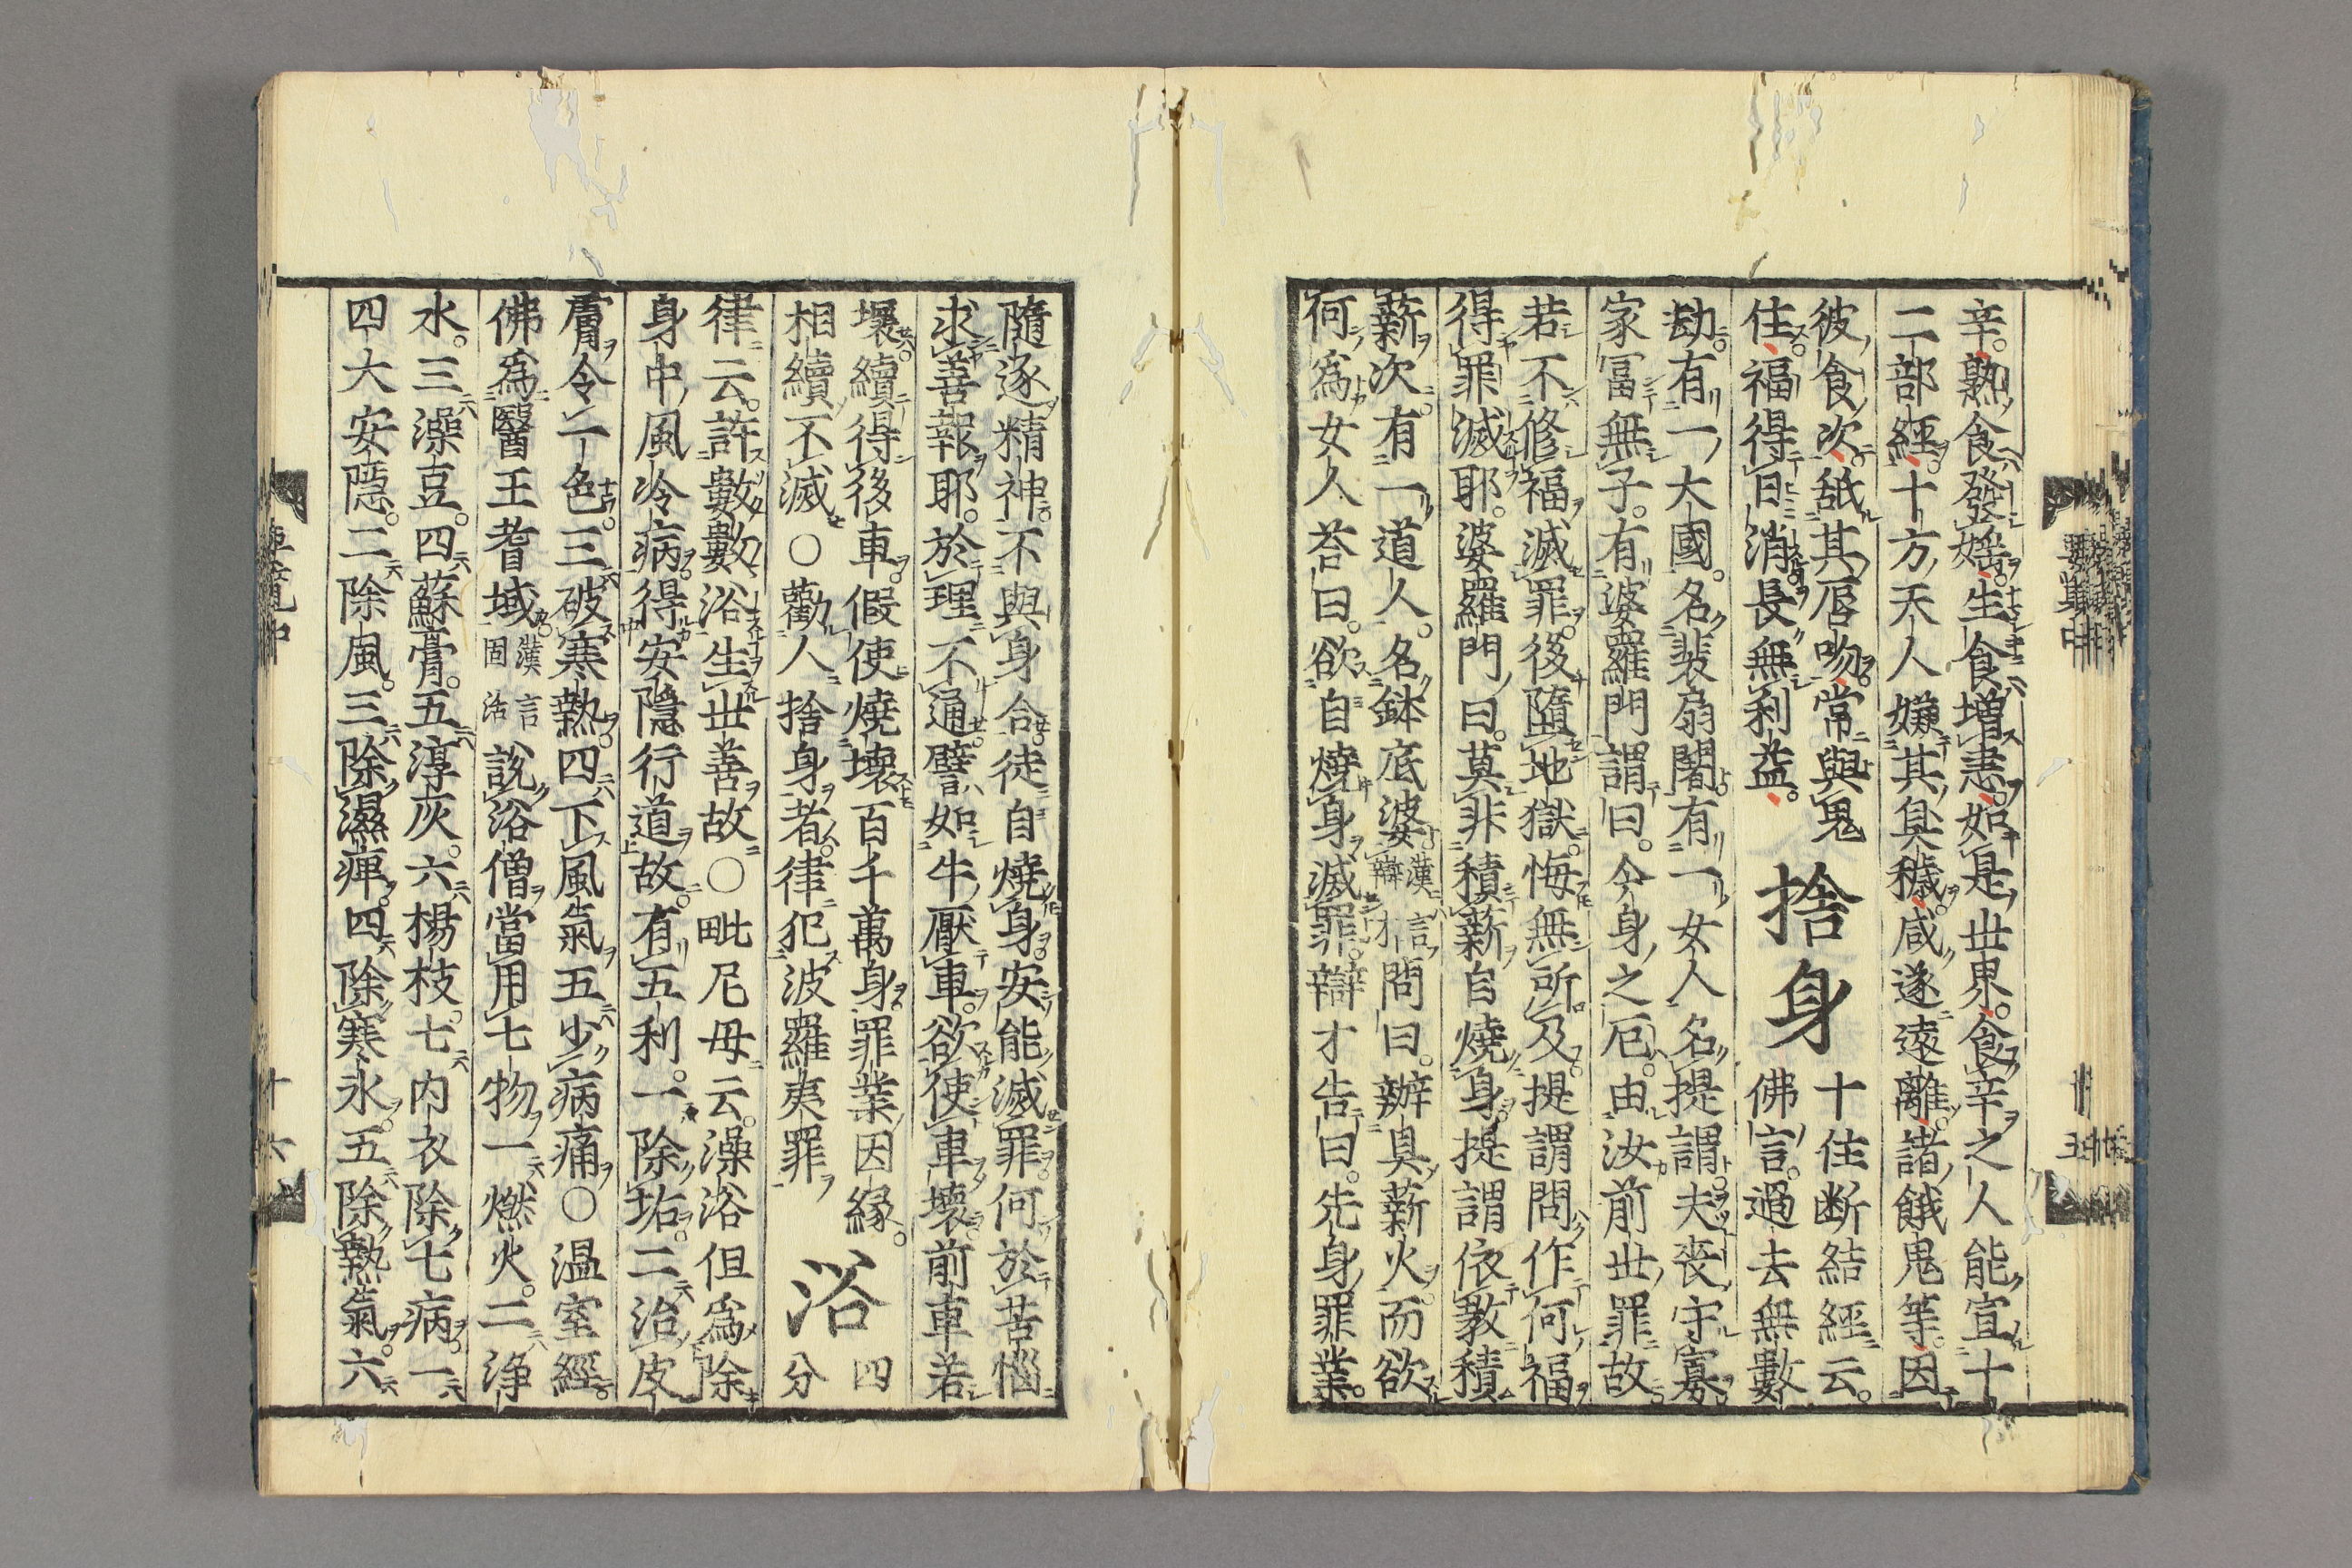 辛。熟食發婬。生食增恚。如是世界。食辛之人能宣十
二部經。十方天人嫌其臭穢。咸遂遠離。諸餓鬼等。因
彼食次。舐其唇吻。常與鬼
住。福得日消。長無利益。
捨身
十住断結經云。
佛言。過去無數
劫。有一大國。名裴扇闍。有一女人。名提謂。夫喪守寡。
家冨無子。有婆羅門謂曰。今身之厄。由汝前世罪故。
若不修福滅罪。後墮地獄。悔無所及。提謂問。作何福
得罪滅耶。婆羅門曰。莫非積薪自燒身。提謂依教積
薪。次有一道人。名鉢底婆
漢言
辯才
問曰。辦具薪火。而欲
何爲。女人荅曰。欲自燒身滅罪。辯才告曰。先身罪業。
隨逐精神。不與身合。徒自燒身。安能滅罪。何於苦惱
求善報耶。於理不通。譬如牛厭車。欲使車壞。前車若
壞。續得後車。假使燒壞百千萬身。罪業因緣。
相續不滅。○勸人捨身者。律犯波羅夷罪。
浴
四
分
律云。許數數浴。生世善故。○毗尼母云。澡浴但爲除
身中風冷病。得安隱行道故。有五利。一除垢。二治皮
膚令一色。三破寒熱。四下風氣。五少病痛。○温室經。
佛爲醫王耆域
漢言
固活
說浴僧當用七物。一燃火。二淨
水。三澡豆。四蘇膏。五淳灰。六楊枝。七内衣。除七病。一
四大安隱。二除風。三除濕痺。四除寒氷。五除熱氣。六
十六